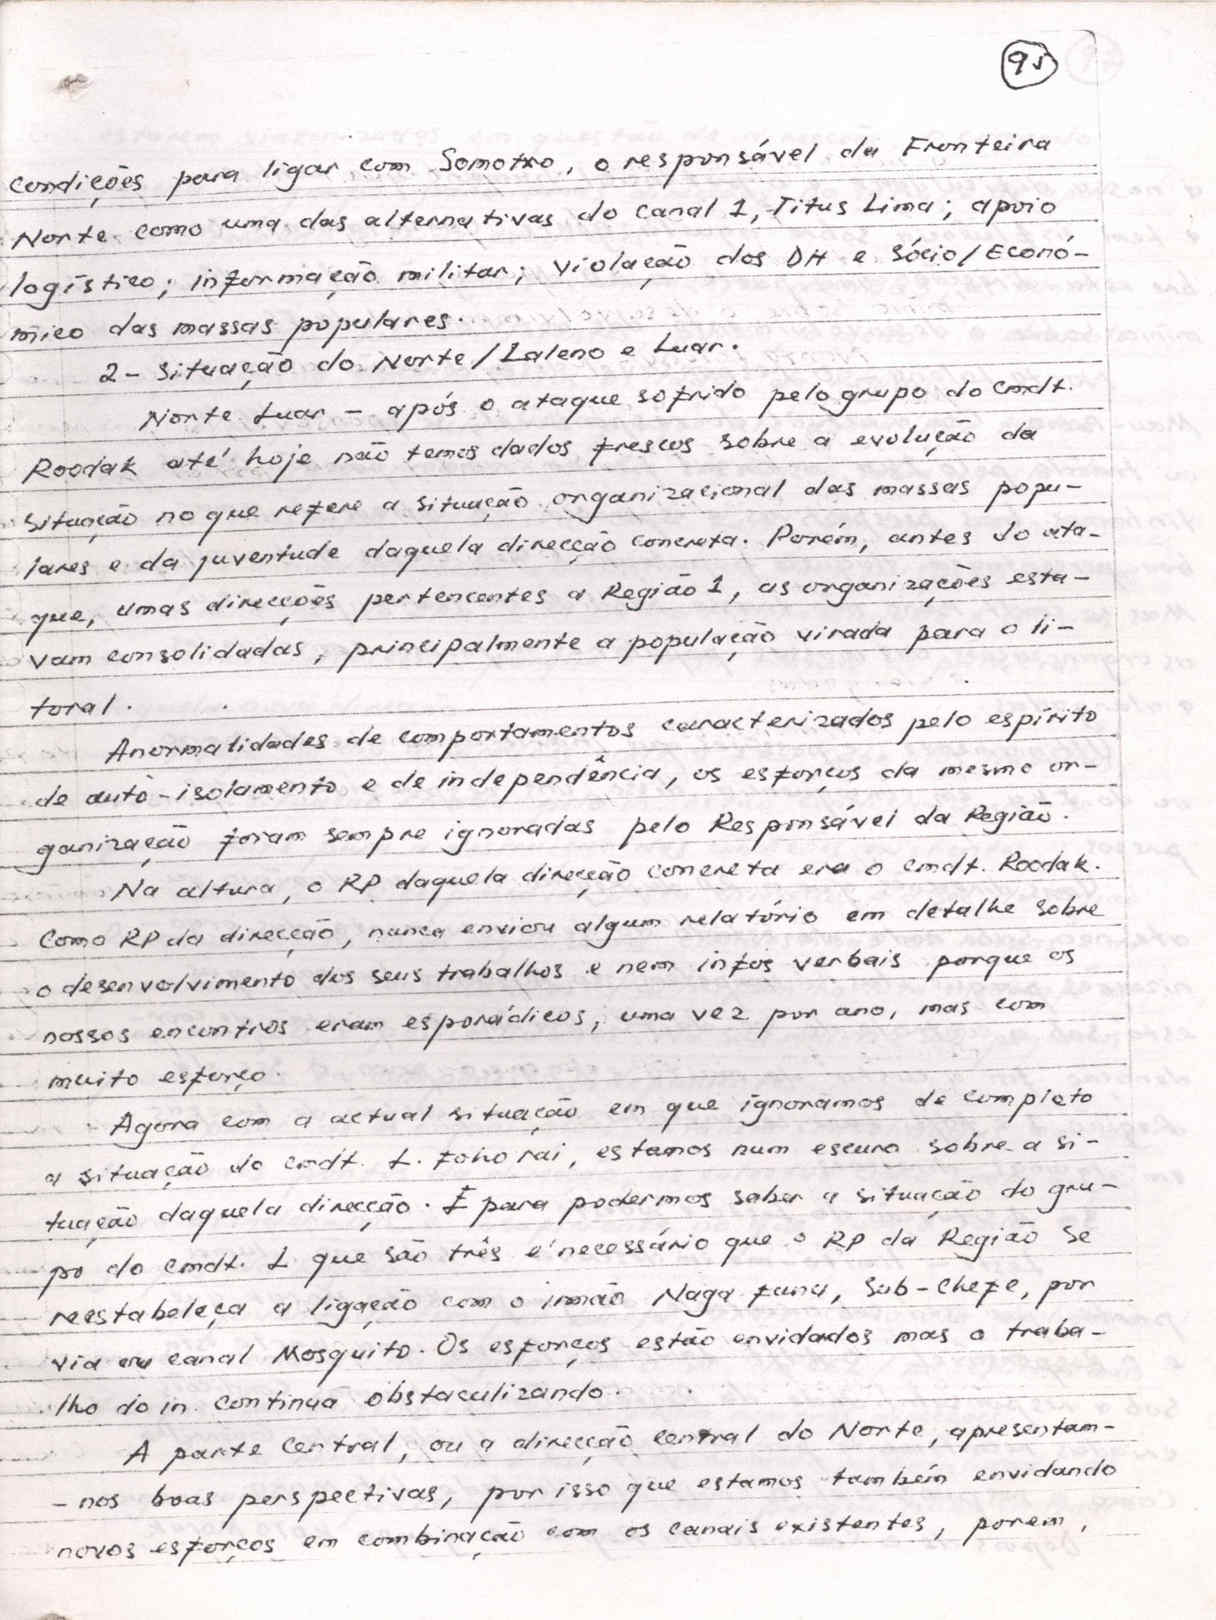 95
condições para ligar com Somotxo, o responsável da Fronteira
Norte como uma das alternativas do canal 1, Titus Lima; apoio
logístico; informação militar; violação dos DH e Sócio/Econó-
mico das massas populares.
2- Situação do Norte/Laleno e Luar.
Norte Luar - após o ataque sofrido pelo grupo do Cmdt.
Roodak até hoje não temos dados frescos sobre a evolução da
situação no que refere a situação organizacional das massas popu-
lares e da juventude daquela direcção concreta. Porém, antes do ata-
que, umas direcções pertencentes a Região 1, as organizações esta-
vam consolidadas, principalmente a população virada para o li-
toral.
Anormalidades de comportamentos caracterizados pelo espírito
de auto-isolamento e de independência, os esforços da mesma or-
ganização foram sempre ignoradas pelo Responsável da Região.
Na altura, o RP daquela direcção concreta era o cmdt. Roodak.
Como RP da direcção, nunca enviou algum relatório em detalhe sobre
o desenvolvimento dos seus trabalhos e nem infos verbais porque os
nossos encontros eram esporádicos, uma vez por ano, mas com
muito esforço.
Agora com a actual situação em que ignoramos de completo
a situação do cmdt. L. Foho rai, estamos num escuro sobre a si-
tuação daquela direcção. E para podermos saber a situação do gru-
po do Cmdt. L que são três é necessário que o RP da Região se
reestabeleça a ligação com o irmão Naga funu, Sub-Chefe, por
via ou canal Mosquito. Os esforços estão envidados mas o traba-
lho do in. continua obstaculizando.
A parte central, ou a direcção central do Norte, apresentam-
-nos boas perspectivas, por isso que estamos também envidando
novos esforços em combinação com os canais existentes, porem,